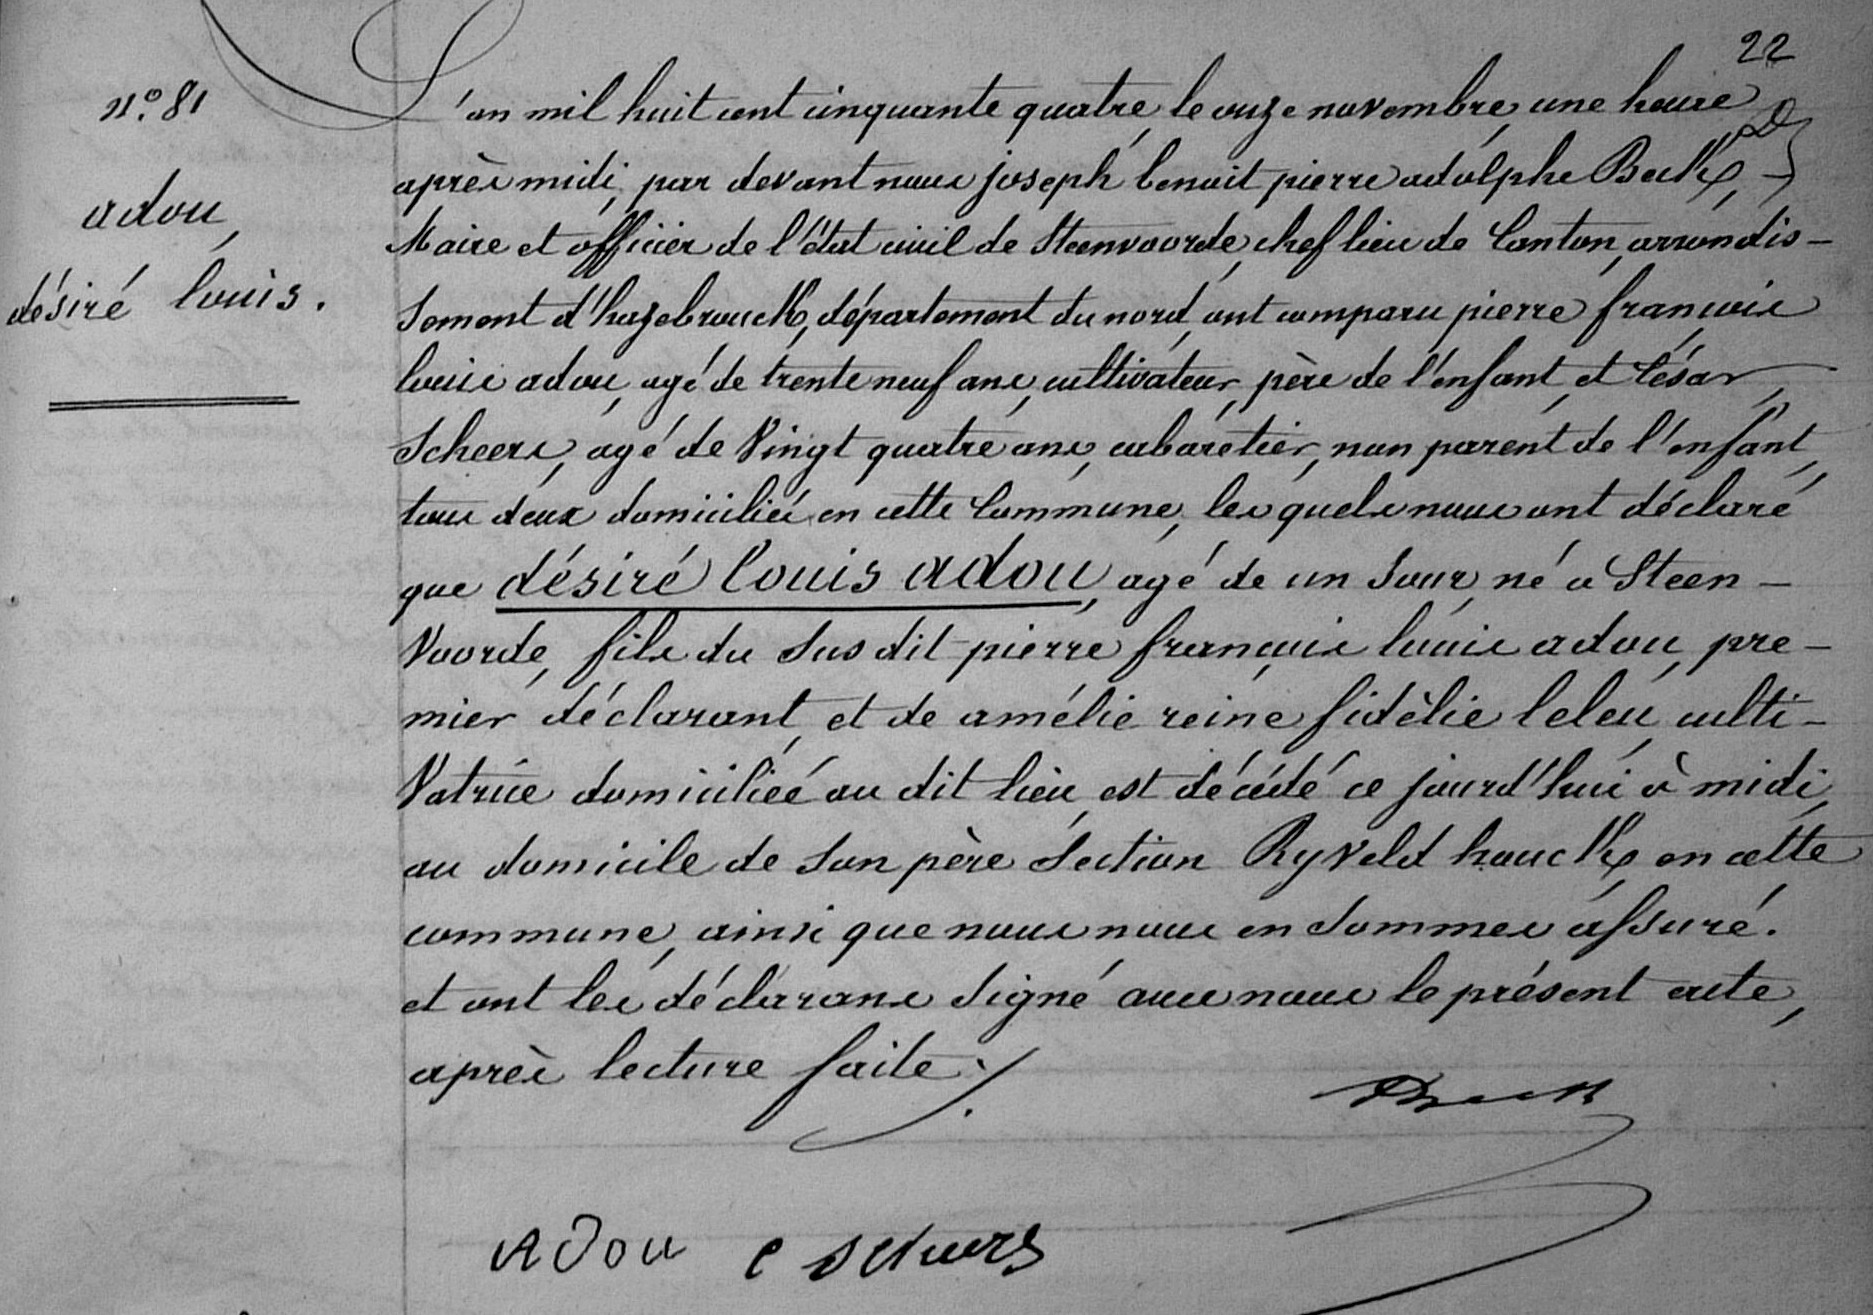 22
N.° 81
adou,
désiré louis.
L'an mil huit cent cinquante quatre, le onze novembre, une heure
après midi, par devant nous joseph benoit pierre adolphe Beck,
Maire et officier de l'état civil de Steenvoorde, chef lieu de Canton, arrondis-
sement d'hazebrouck, département du nord, ont comparu pierre françois
louis adou, agé de trente neuf ans, cultivateur, père de l'enfant, et César
Scheers, agé de Vingt quatre ans, cabaretier, non parent de l'enfant,
tous deux domiciliés en cette Commune, lesquels nous ont déclaré
que désiré louis adou, agé de un jour, né à Steen-
Voorde, fils du Sus dit pierre françois louis adou, pre-
mier déclarant, et de amélie reine fidèlie leleu, culti-
Vatrice domiciliée au dit lieu, est décédé ce jourd'hui à midi,
au domicile de son père Section Ryveld houck, en cette
commune, ainsi que nous nous en sommes assuré.
et ont les déclarans signé avec nous le présent acte,
après lecture faite ./.
Beck
Adou c scheers